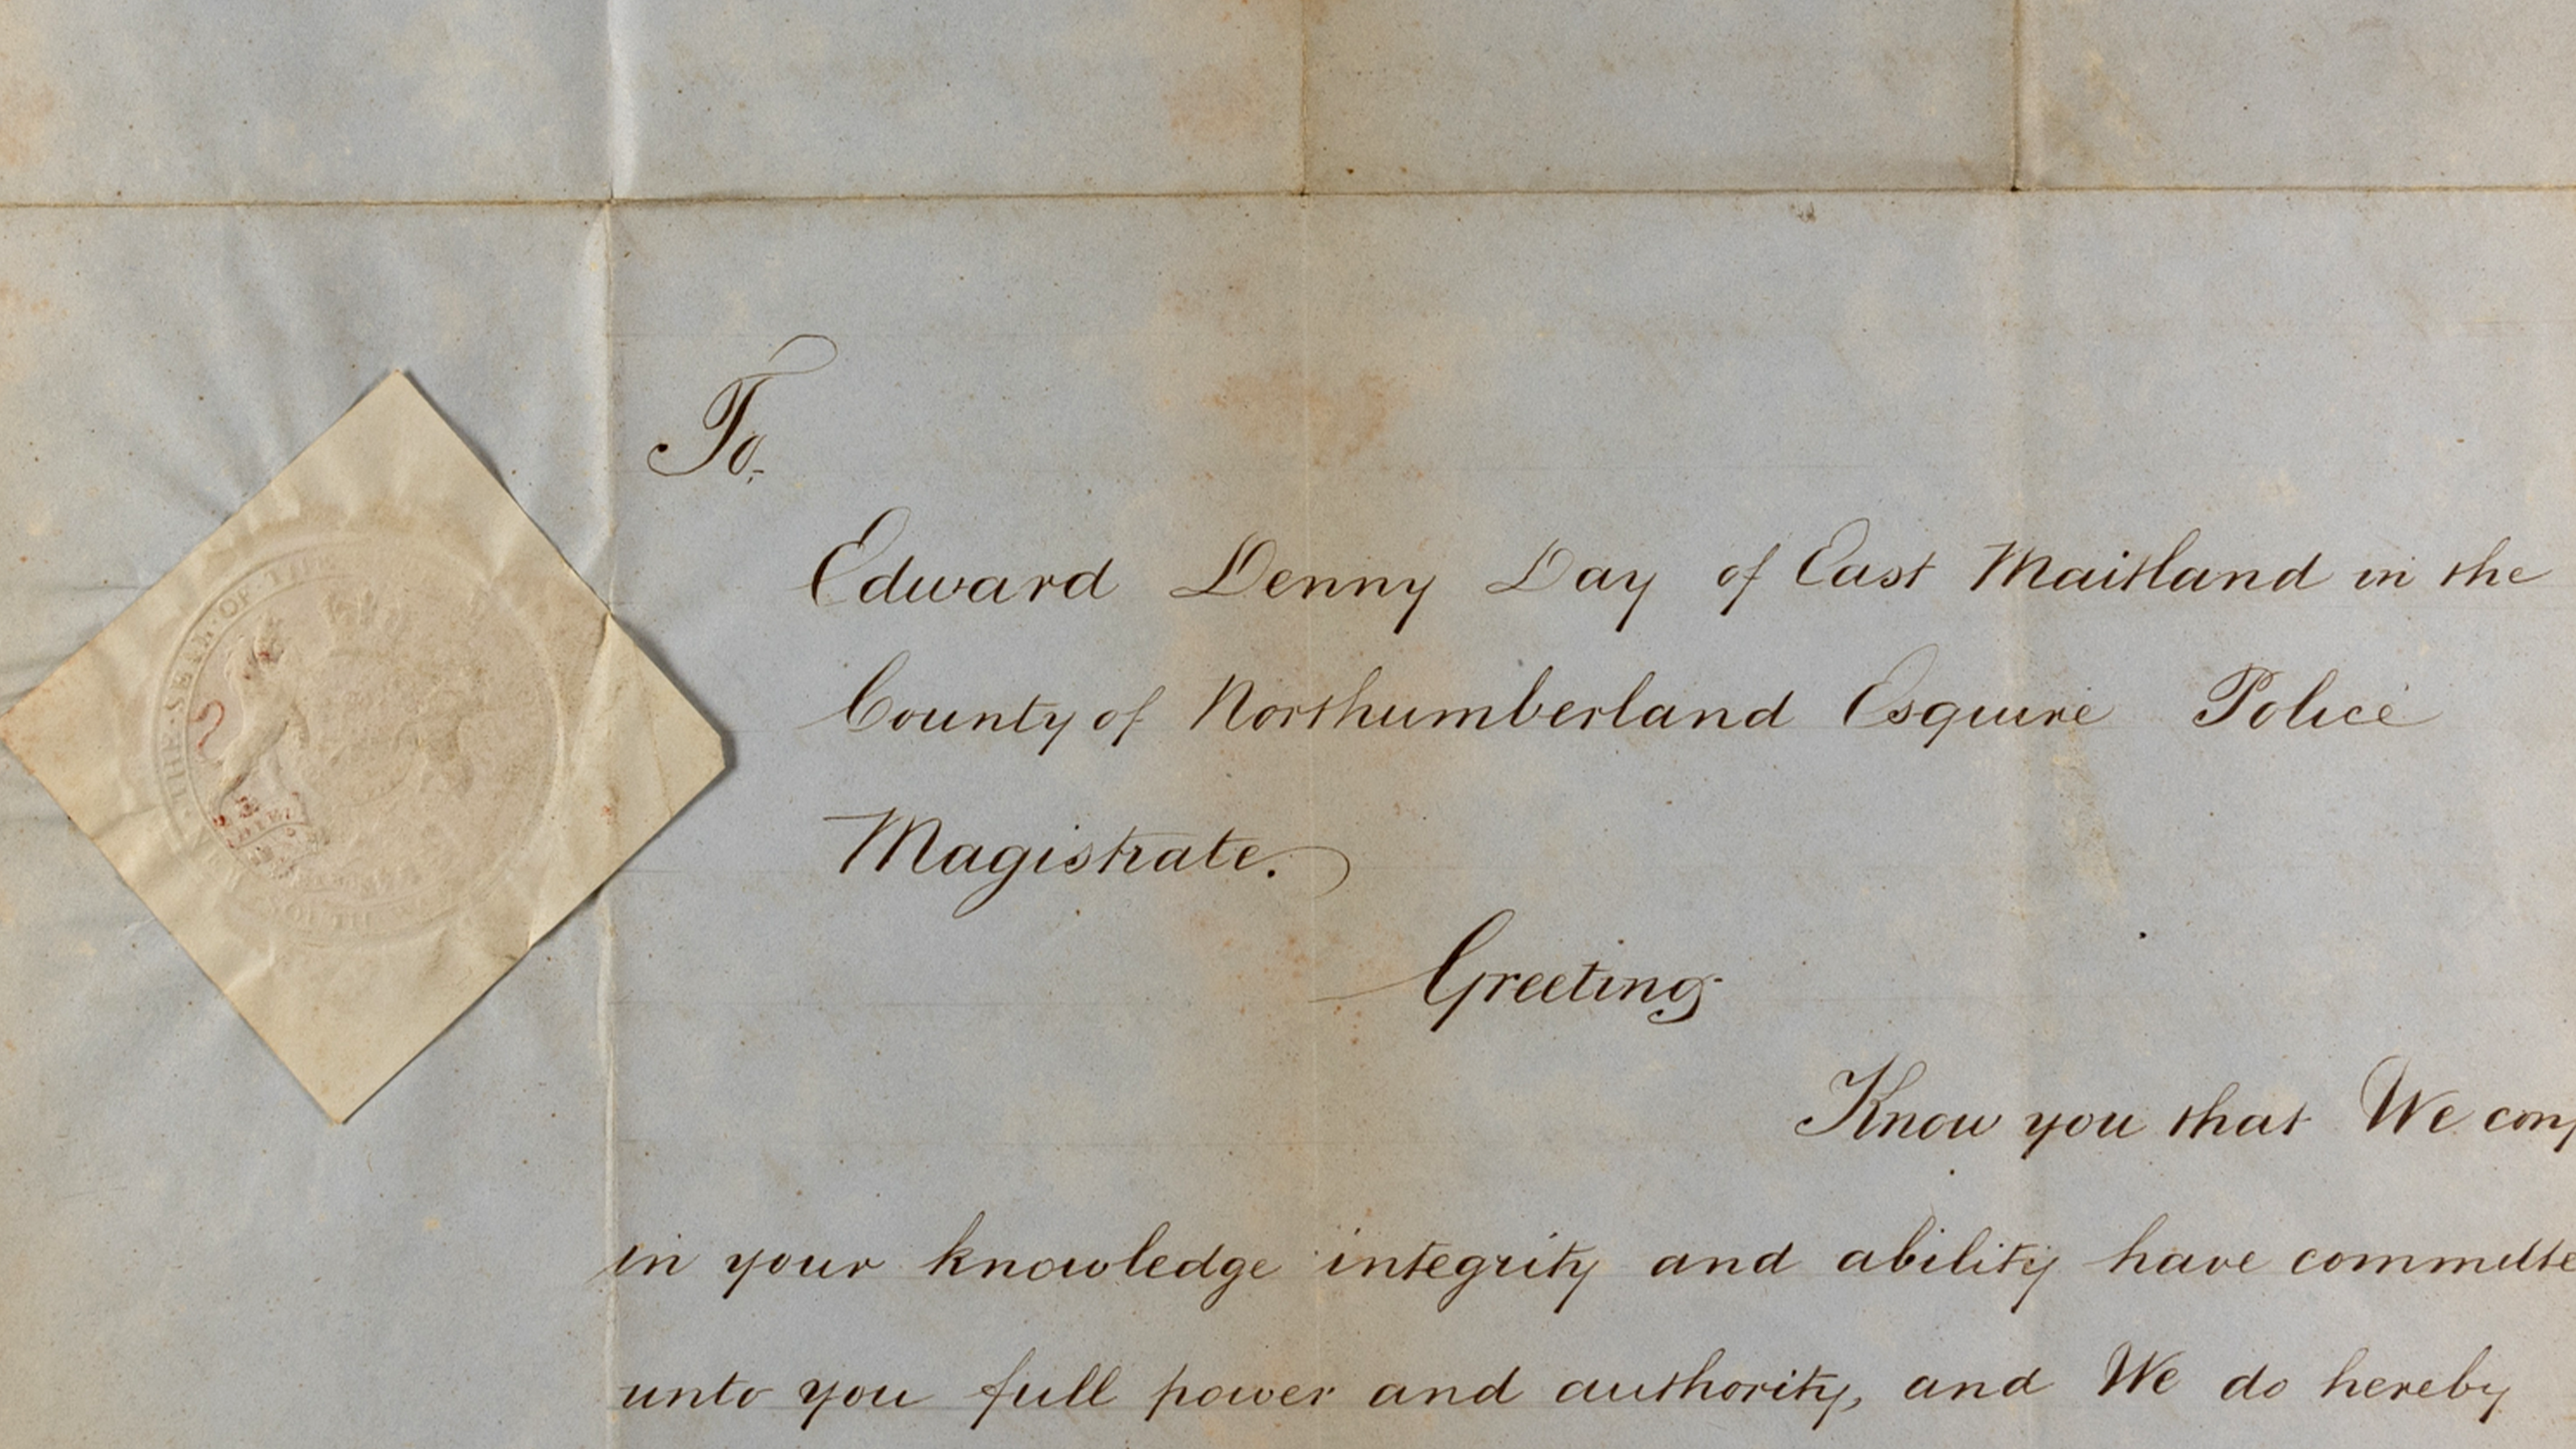 To,
Edward Denny Day of East Maitland in the
County of Northumberland Esquire Police
Magistrate.
Greeting
Know you that We conf
in your knowledge integrity and ability have committe
unto you full power and authority, and We do hereby
THE · SEAL · OF · THE
DIEU
SOUTH